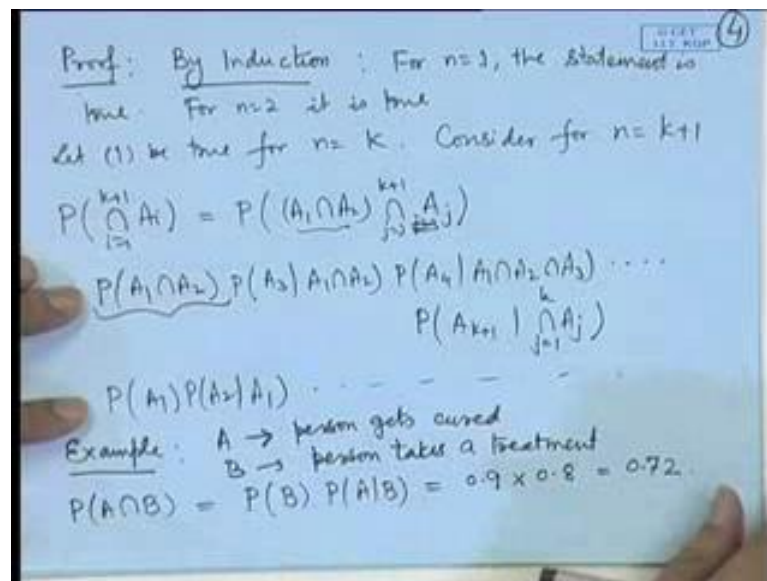 4
Proof: By Induction : For n=1, the statement is
true. For n=2 it is true
Let (1) be true for n= k. Consider for n= k+1
P(⋂_{i=1}^{k+1} Ai) = P((A₁∩A₂) ⋂_{j=3}^{k+1} Aj)
P(A₁∩A₂) P(A₃|A₁∩A₂) P(A₄|A₁∩A₂∩A₃) ....
P(A_{k+1} | ⋂_{j=1}^{k} Aj)
P(A₁)P(A₂|A₁) . - - - - - .
Example: A → person gets cured
B → person takes a treatment
P(A∩B) = P(B) P(A|B) = 0.9 × 0.8 = 0.72.